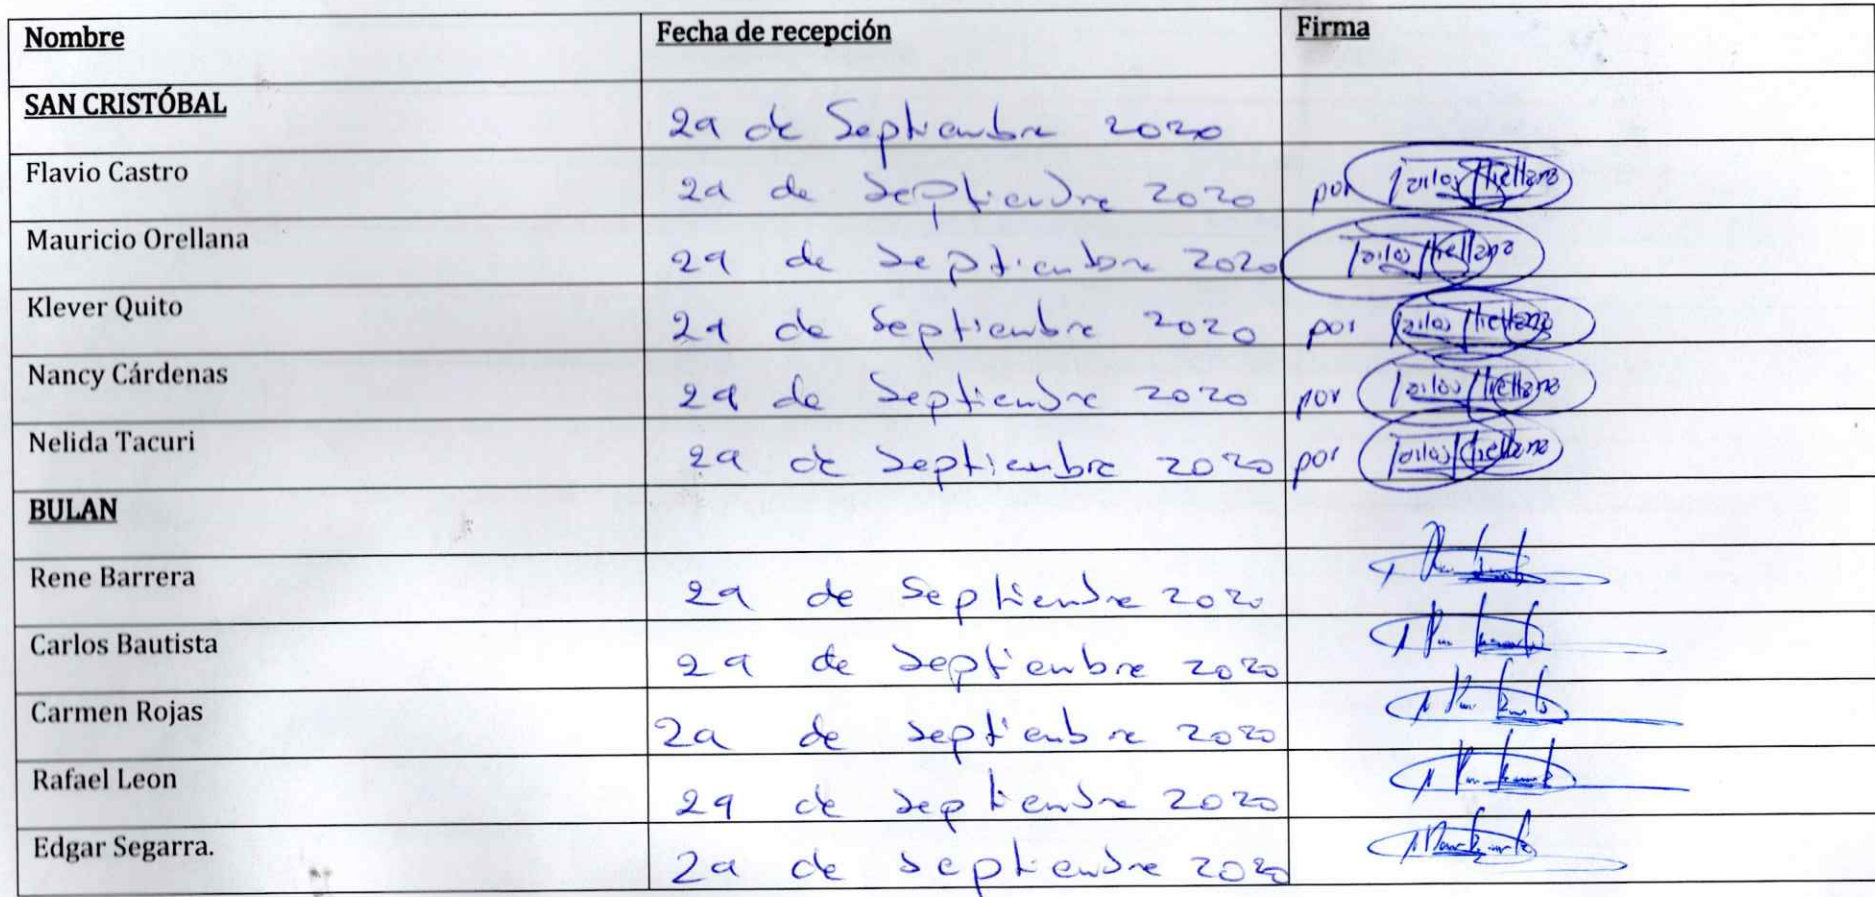 Nombre Fecha de recepción Firma
SAN CRISTÓBAL 29 de Septiembre 2020
Flavio Castro 29 de Septiembre 2020 por
Mauricio Orellana 29 de Septiembre 2020
Klever Quito 29 de Septiembre 2020 por
Nancy Cárdenas 29 de Septiembre 2020 por
Nelida Tacuri 29 de Septiembre 2020 por
BULAN
Rene Barrera 29 de Septiembre 2020
Carlos Bautista 29 de Septiembre 2020
Carmen Rojas 29 de Septiembre 2020
Rafael Leon 29 de Septiembre 2020
Edgar Segarra. 29 de Septiembre 2020